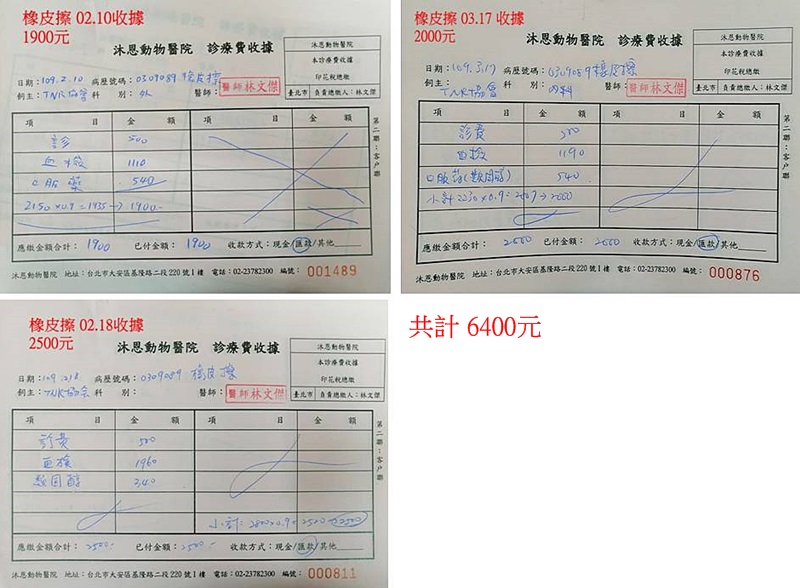 橡皮擦 02.10收據
1900元
沐恩動物醫院 診療費收據
沐恩動物醫院
本診療費收據
印花稅總繳
臺北市 負責總繳人：林文傑
日期：109.2.10 病歷號碼：0309089 橡皮擦
飼主：TNR協會 科 別：外 醫師：醫師林文傑
項 目 金 額 項 目 金 額
診 500
血檢 1110
口服藥 540
2150×0.9=1935→1900-
應繳金額合計：1900 已付金額：1900 收款方式：現金/匯款/其他
第二聯：客戶聯
沐恩動物醫院 地址：台北市大安區基隆路二段220號1樓 電話：02-23782300 編號：001489
橡皮擦 03.17 收據
2000元
沐恩動物醫院 診療費收據
沐恩動物醫院
本診療費收據
印花稅總繳
臺北市 負責總繳人：林文傑
日期：109.3.17 病歷號碼：0309089 橡皮擦
飼主：TNR協會 科 別：內科 醫師：醫師林文傑
項 目 金 額 項 目 金 額
診費
血檢 1190
口服藥(類固醇) 540
小計 2230×0.9=2007→2000
應繳金額合計：2000 已付金額：2000 收款方式：現金/匯款/其他
第二聯：客戶聯
沐恩動物醫院 地址：台北市大安區基隆路二段220號1樓 電話：02-23782300 編號：000876
橡皮擦 02.18收據
2500元
沐恩動物醫院 診療費收據
沐恩動物醫院
本診療費收據
印花稅總繳
臺北市 負責總繳人：林文傑
日期：109.2.18 病歷號碼：0309089 橡皮擦
飼主：TNR協會 科 別： 醫師：醫師林文傑
項 目 金 額 項 目 金 額
診費 500
血檢 1960
類固醇 340
小計：2800×0.9=2520→2500
應繳金額合計：2500- 已付金額：2500- 收款方式：現金/匯款/其他
第二聯：客戶聯
沐恩動物醫院 地址：台北市大安區基隆路二段220號1樓 電話：02-23782300 編號：000811
共計 6400元